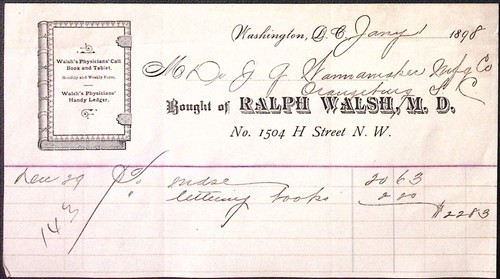 Walsh's Physicians' Call
Book and Tablet.
Monthly and Weekly Forms.
Walsh's Physicians'
Handy Ledger.
Washington, D.C. Jany 1 1898
M Dr J G Wannamaker Mfg Co
Orangeburg S C
Bought of RALPH WALSH, M. D.
No. 1504 H Street N. W.
Dec 29 To mdse 20 63
" lettering books 2 20
$22 83
143